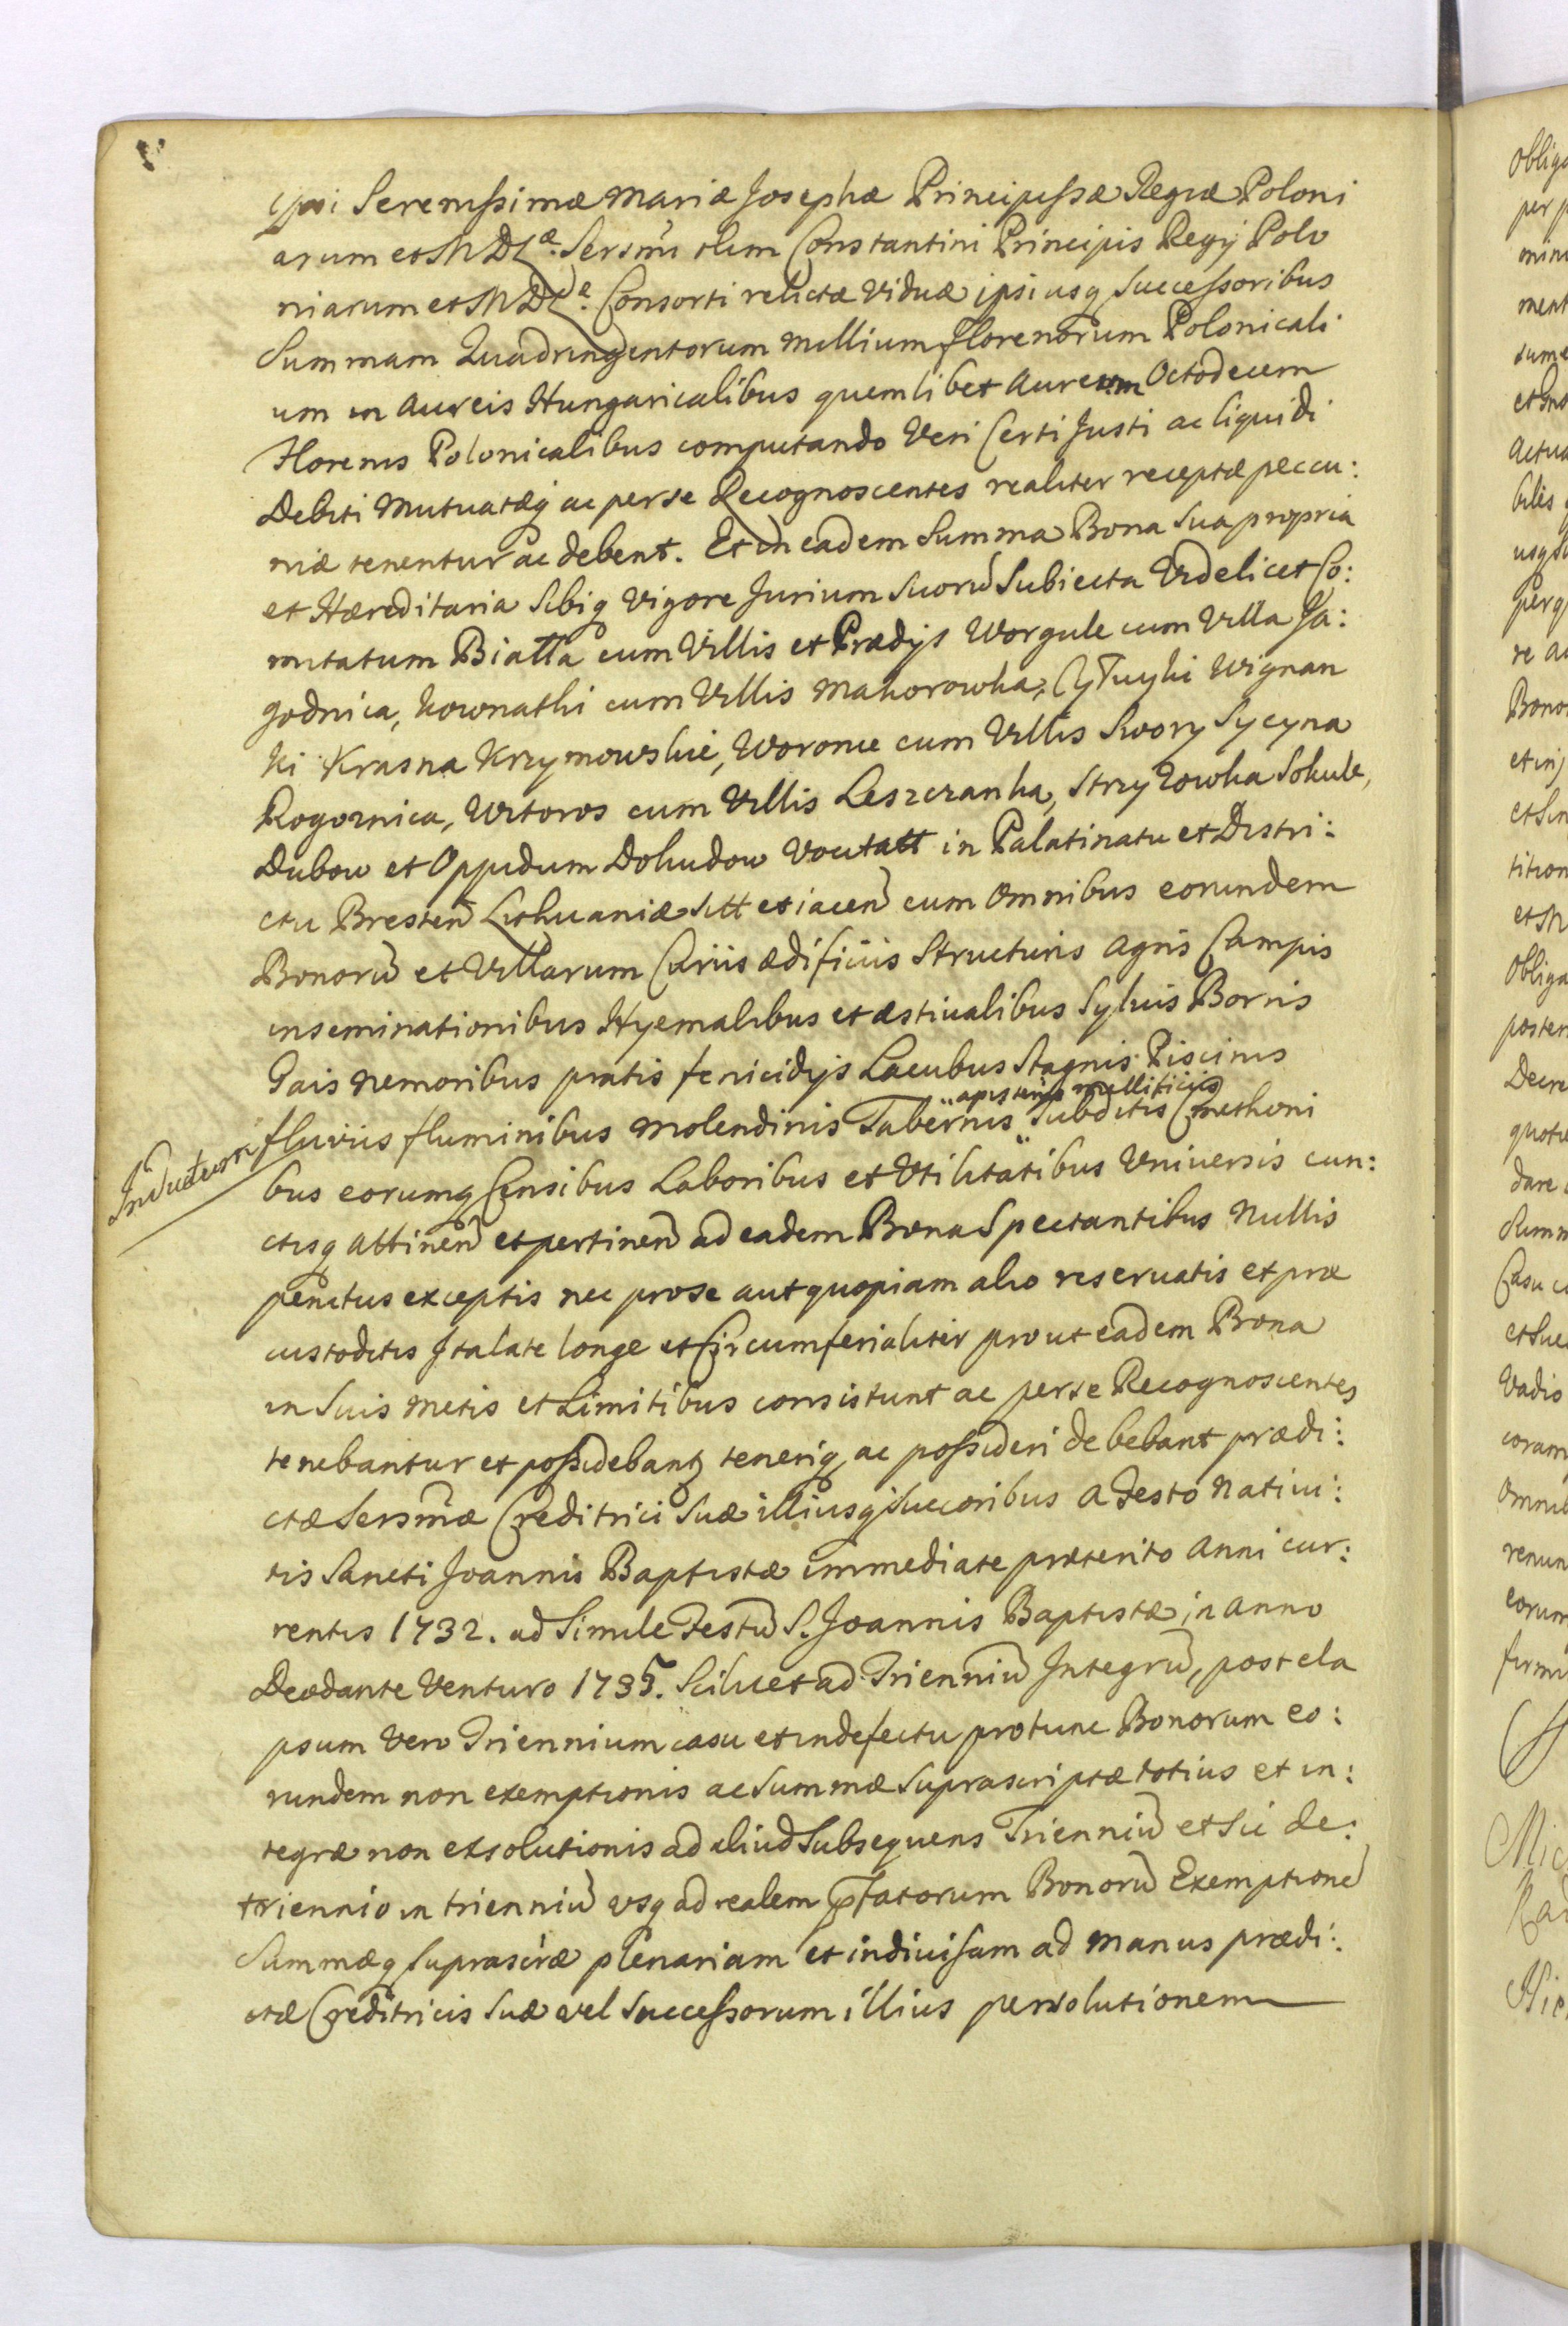 ipsi Serenissimæ Mariæ Josephæ Principessæ Regiæ Poloni
arum et M D L æ. Sersmi olim Constantini Principis Regij Polo
niarum et M D L æ. Consorti relictæ Viduæ ipsiusq Successoribus
Summam Quadringentorum Millium florenorum Polonicali
um in Aureis Hungaricalibus quemlibet Aureum Octodecem
Florenis Polonicalibus computando Veri Certi Justi ac liquidi
Debiti Mutuatæq ac per se Recognoscentes realiter receptæ peccu:
niæ tenentur ac debent. Et in eadem Summa Bona Sua propria
et Hæreditaria Sibiq Vigore Jurium Suorū Subiecta Videlicet Co:
mitatum Biatta cum Villis et Prædijs Worgule cum Villa Ja:
godnica, Kownathi cum Villis Makorowka, CyTuyki Wignan
ki Krasna Krzymowskie, Woronie cum Villis Swory Sycyna
Rogoznica, Witoros cum Villis Leszczanka, Strzyzowka Sokule,
Dubow et Oppidum Dokudow Vocitatt in Palatinatu et Distri:
ctu Bresten Lithuaniæ Sitt et iacen cum Omnibus eorundem
Bonorū et Villarum Curiis ædificiis Structuris Agris Campis
inseminationibus Hyemalibus et æstiualibus Syluis Borris
Gais Nemoribus pratis fenicidijs Lacubus Stagnis Piscinis
apisterijs mellificiis
fluviis fluminibus Molendinis Tabernis Subditis Cmethoni
Inductum
bus eorumq Censibus Laboribus et Vtilitatibus Vniuersis cun:
ctisq Attinen et pertinen ad eadem Bona Spectantibus Nullis
penitus exceptis nec pro se aut quopiam alio reseruatis et præ
custoditis Ita late longe et Circumferialiter prout eadem Bona
in Suis Metis et Limitibus consistunt ac per se Recognoscentes
tenebantur et possidebant teneriq ac possideri debebant prædi:
ctæ Sersmæ Creditrici Suæ illiusq Succoribus A Festo Natiui:
tis Sancti Joannis Baptistæ immediate præterito Anni cur:
rentis 1732. ad Simile Festū S. Joannis Baptistæ in Anno
Deo dante Venturo 1735. Scilicet ad Trienniū Integrū, post ela
psum Vero Triennium casu et in defectu protunc Bonorum eo:
rundem non exemptionis ac Summæ Suprascriptæ totius et in:
tegræ non exsolutionis ad aliud Subsequens Trienniū et sic de:
triennio in trienniū vsq ad realem ptatorum Bonorū Exemptionē
Summæq Suprascræ plenariam et indiuisam ad Manus prædi:
ctæ Creditricis Suæ vel Successorum illius persolutionem